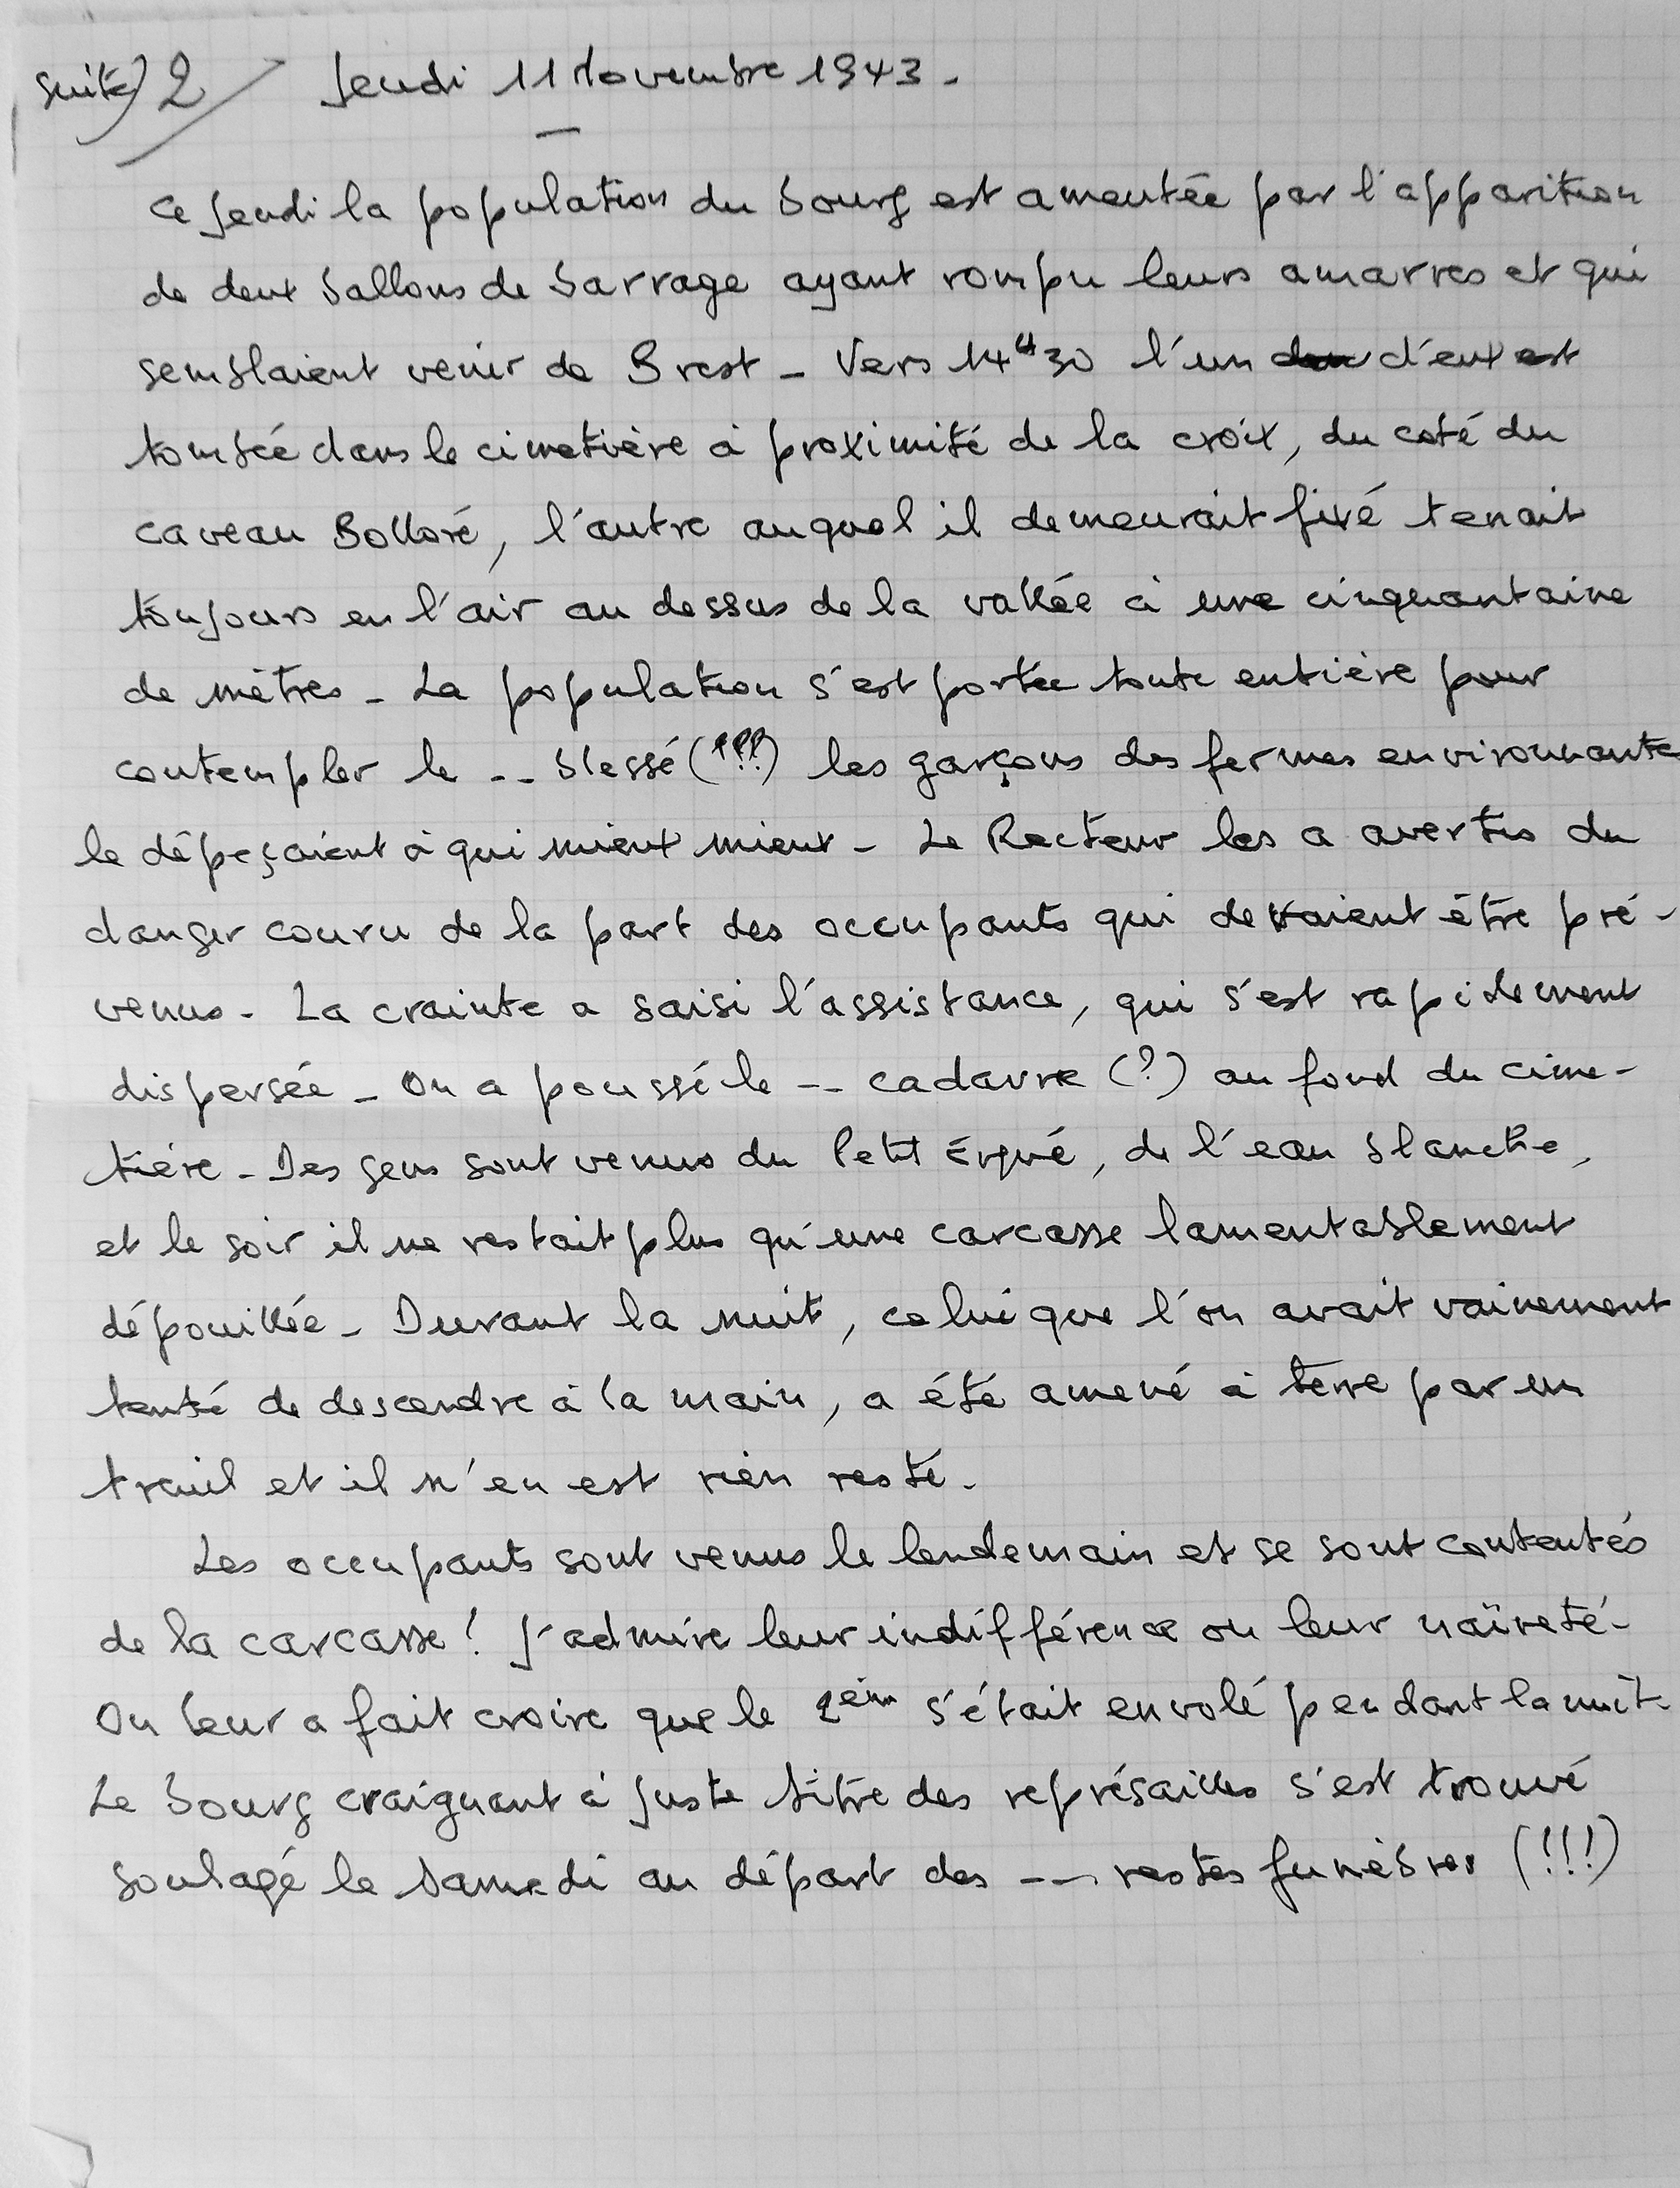 suite) 2/ Jeudi 11 Novembre 1943.
Ce Jeudi la population du bourg est ameutée par l'apparition
de deux ballons de barrage ayant rompu leurs amarres et qui
semblaient venir de Brest - Vers 14H30 l'un d'eux est
tombée dans le cimetière à proximité de la croix, du coté du
caveau Bolloré, l'autre auquel il demeurait fixé tenait
toujours en l'air au dessus de la vallée à une cinquantaine
de mètres - La population s'est portée toute entière pour
contempler le -- blessé (???) les garçons des fermes environnante
le dépeçaient à qui mieux mieux - Le Recteur les a avertis du
danger couru de la part des occupants qui devaient être pré-
venus - La crainte a saisi l'assistance, qui s'est rapidement
dispersée - On a poussé le -- cadavre (?) au fond du cime-
tière - Des gens sont venus du Petit Ergué, de l'eau blanche,
et le soir il ne restait plus qu'une carcasse lamentablement
dépouillée - Durant la nuit, celui que l'on avait vainement
tenté de descendre à la main, a été amené à terre par un
treuil et il n'en est rien resté.
Les occupants sont venus le lendemain et se sont contentés
de la carcasse ! J'admire leur indifférence ou leur naïveté -
On leur a fait croire que le 2èm s'était envolé pendant la nuit -
Le bourg craignant à juste titre des représailles s'est trouvé
soulagé le samedi au départ des --- restes funèbres (!!!)